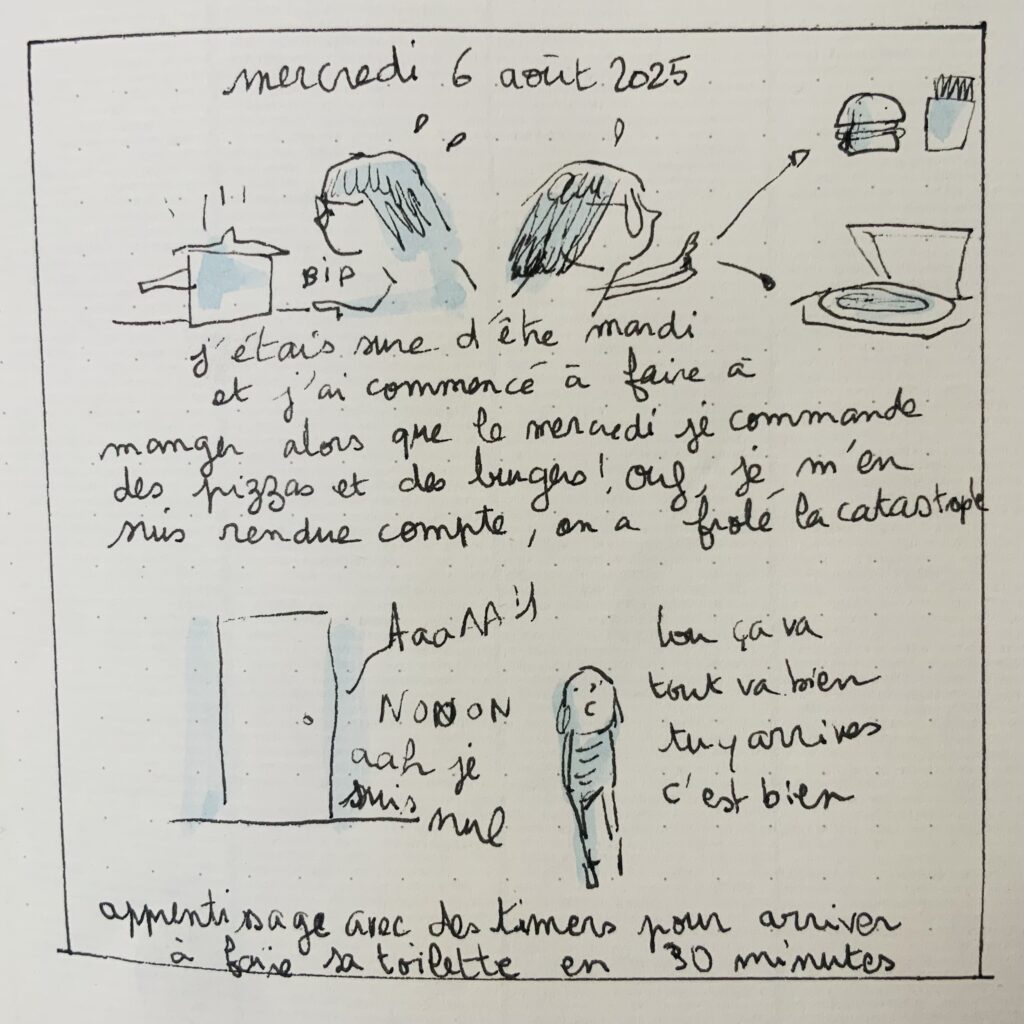 mercredi 6 août 2025
BIP
j'étais sure d'être mardi
et j'ai commencé à faire à
manger alors que le mercredi je commande
des pizzas et des burgers! Ouf, je m'en
suis rendue compte, on a frôlé la catastrophe
AaaAA
NOOON
aah je
suis
nul
ça va
tout va bien
tu y arrives
c'est bien
apprentissage avec des timers pour arriver
à faire sa toilette en 30 minutes